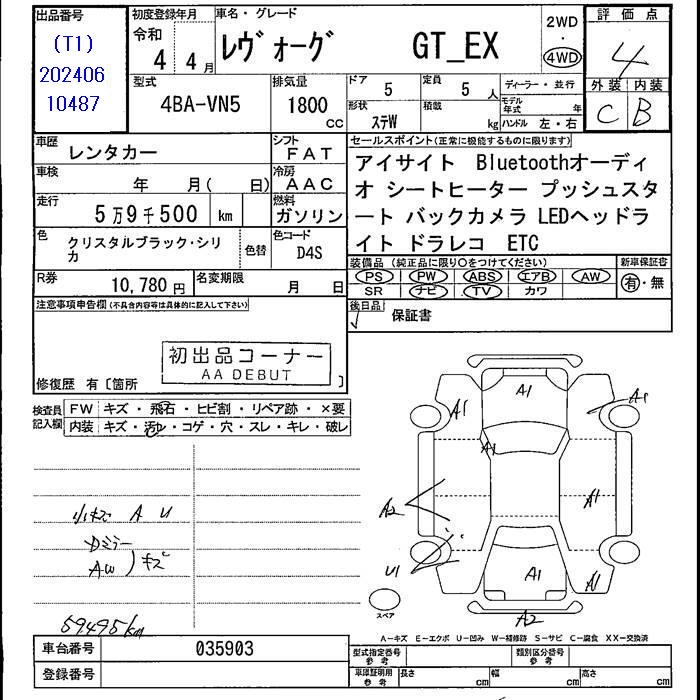 出品番号
(T1)
202406
10487
初度登録年月
令和
4 4月
車名・グレード
レヴォーグ GT_EX
2WD
・
4WD
評価点
4
外装 内装
C B
型式
4BA-VN5
排気量
1800
CC
ドア
5
定員
5 人
形状
ステW
積載
kg
ディーラー・並行
モデル年式 年
ハンドル 左・右
車歴
レンタカー
シフト
FAT
車検
年 月( 日)
冷房
AAC
走行
5万9千500 km
燃料
ガソリン
色
クリスタルブラック・シリカ
色替
色コード
D4S
R券
10,780円
名変期限
月 日
セールスポイント(正常に機能するものに限ります)
アイサイト Bluetoothオーディ
オ シートヒーター プッシュスタ
ート バックカメラ LEDヘッドラ
イト ドラレコ ETC
装備品(純正品に限り○をつけてください)
新車保証書
PS PW ABS エアB AW
SR ナビ TV カワ
有・無
後日品
保証書
注意事項申告欄(不具合内容等は具体的に記入して下さい)
初出品コーナー
AA DEBUT
修復歴 有〔箇所 〕
検査員
記入欄
FW キズ・飛石・ヒビ割・リペア跡・×要
内装 キズ・汚レ・コゲ・穴・スレ・キレ・破レ
小キズ A U
Dミラー
AW )キズ
59495km
A1
A1
A1
A1
A2
A1
U1
A1
A1
A2
スペア
A-キズ E-エクボ U-凹み W-補修跡 S-サビ C-腐食 XX-交換済
車台番号
035903
登録番号
型式指定番号
参考
類別区分番号
参考
車庫証明用
参考
長さ cm
幅 cm
高さ cm